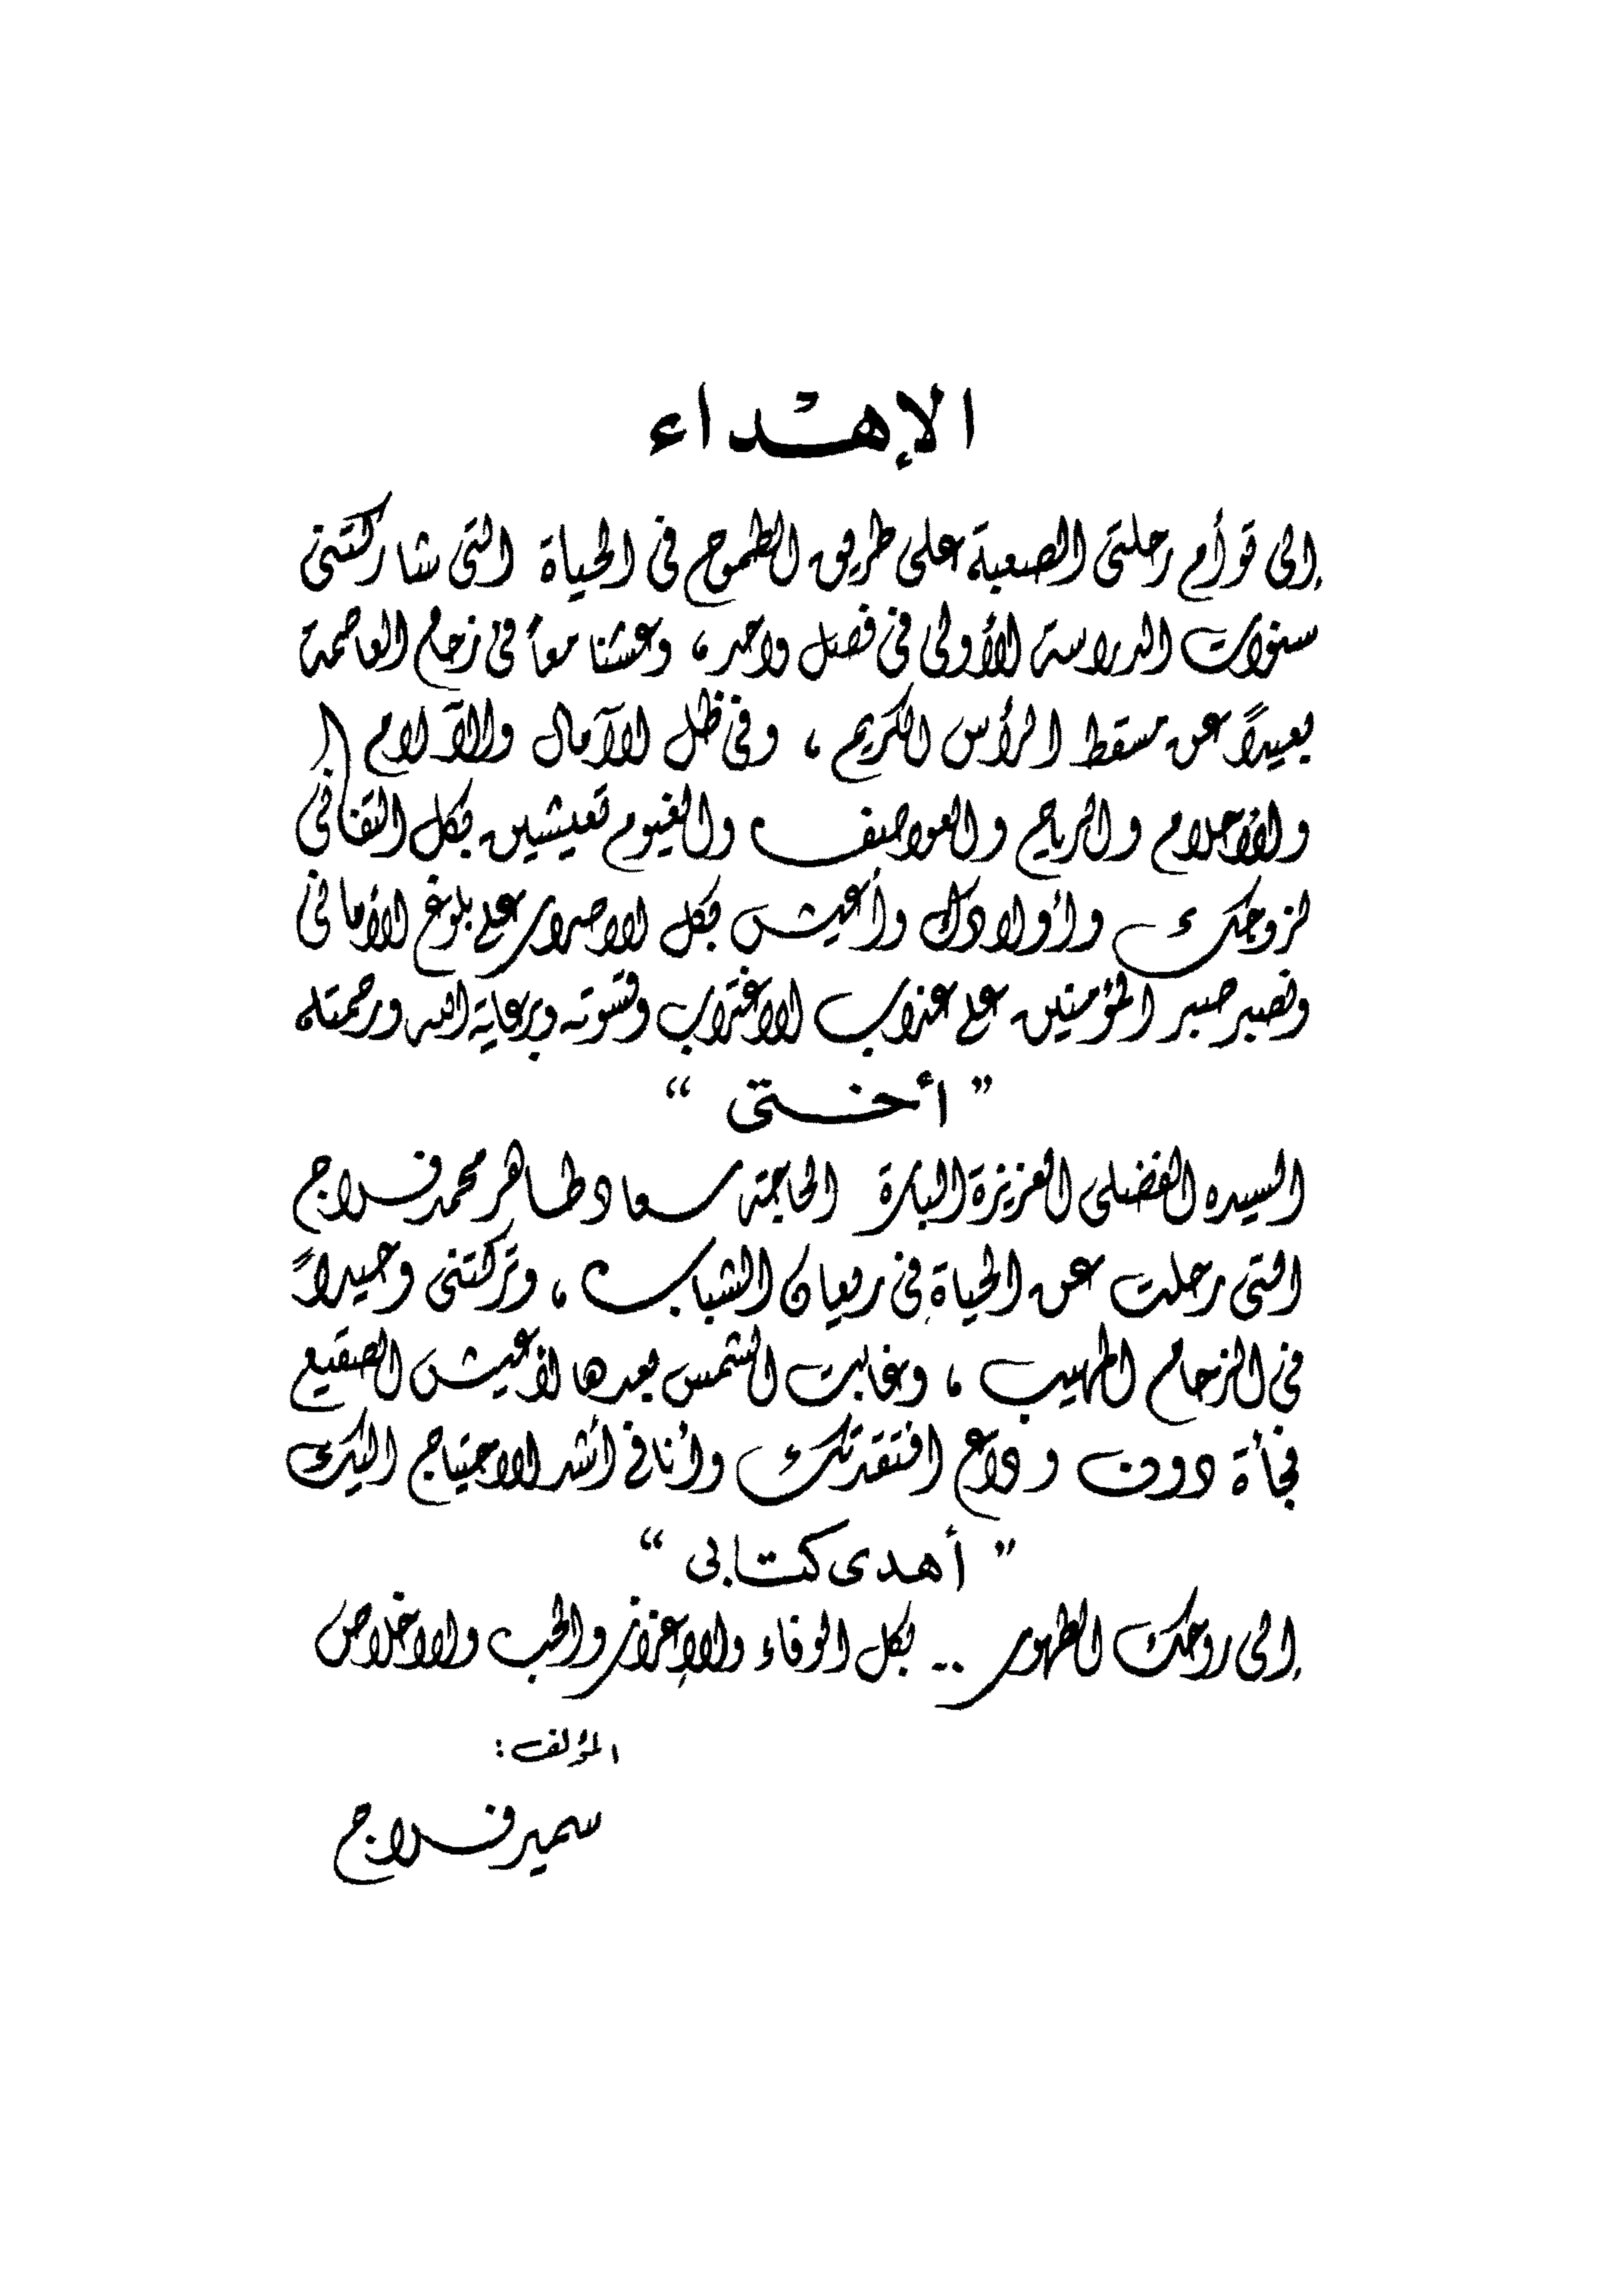 الإهداء
إلى توأم رحلتى الصعبة على طريق الطموح فى الحياة التى شاركتنى
سنوات الدراسة الأولى فى فصل واحد ، وعشنا معاً فى زحام العاصمة
بعيداً عن مسقط الرأس الكريم ، وفى ظل الآمال والآلام
والأحلام والرياح والعواصف والغيوم تعيشين بكل التفانى
لزوجك وأولادك وأعيش بكل الاصرار على بلوغ الأمانى
ونصبر صبر المؤمنين على عذاب الاغتراب وقسوته وبرعاية الله ورحمته
" أختى "
السيده الفضلى العزيزة البارة الحاجة سعاد طاهر محمد فراج
التى رحلت عن الحياة فى ريعان الشباب ، وتركتنى وحيداً
فى الزحام المهيب ، وغابت الشمس بعدها لأعيش الصقيع
فجأة دون وداع افتقدتك وأنا فى أشد الاحتياج اليك
" أهدى كتابى "
إلى روحك الطهور .. بكل الوفاء والإعزاز والحب والاخلاص
المؤلف :
سمير فراج